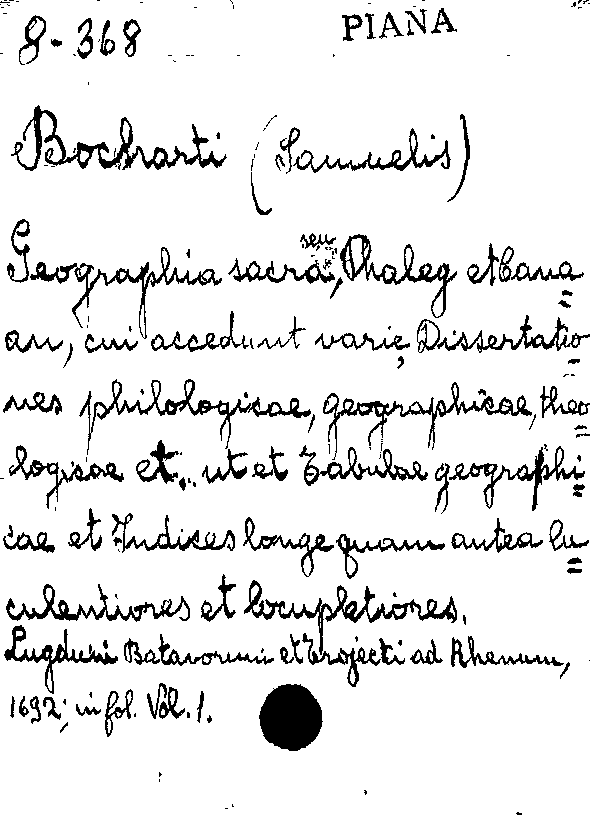 8-368 PIANA
Bocharti (Samuelis)
Geographia sacra, seu Phaleg et Cana=
an, cui accedunt varie Dissertatio=
nes philologicae, geographicae, theo=
logicae etc., ut et Tabulae geographi=
cae et Indices longe quam antea lu=
culentiores et locupletiores.
Lugduni Batavorum et Trojecti ad Rhenum,
1692; in fol. Vol. 1.